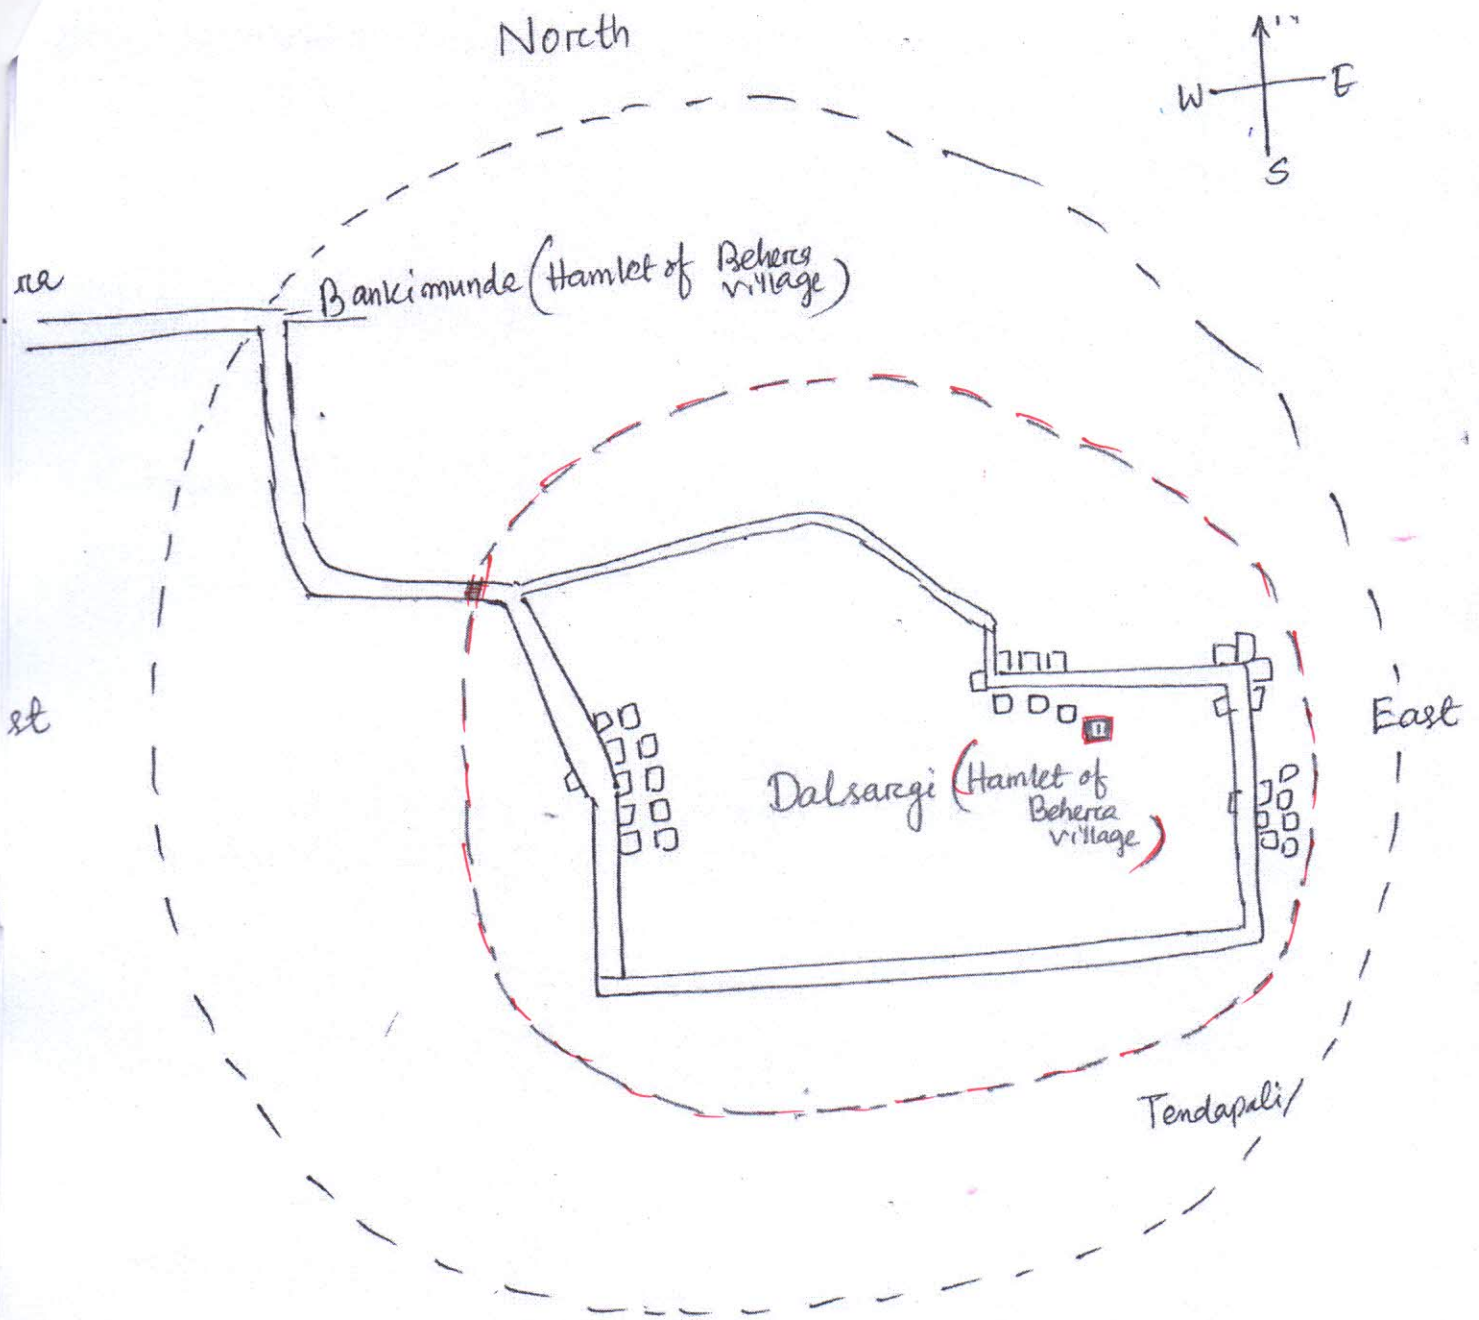 Noreth
N
W E
S
ra
Bankimunda (Hamlet of Behera
village)
st
East
Dalsaregi (Hamlet of
Beherca
village)
Tendapali